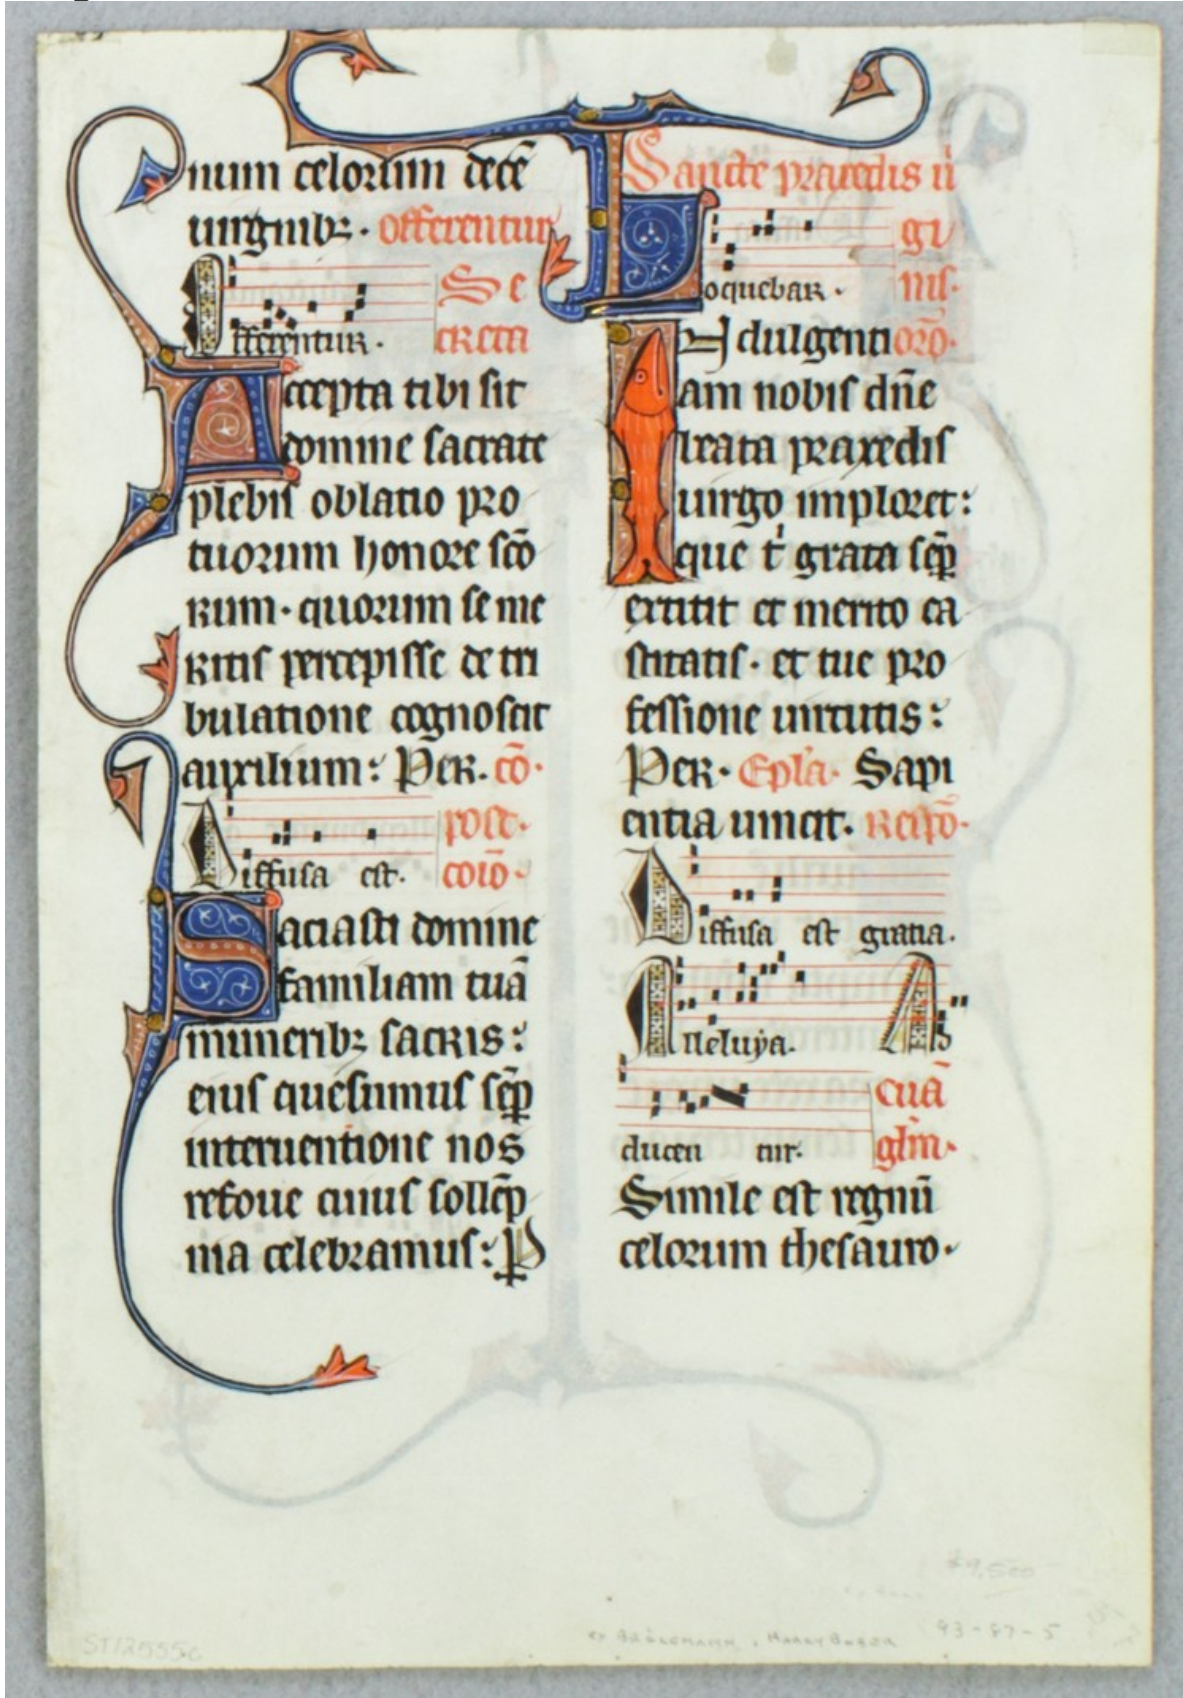 num celorum decē
uirginibꝫ · offerentur
Offerentur. Se
creta
Accepta tibi sit
domine sacrate
plebis oblatio pro
tuorum honore scō
rum· quorum se me
ritis percepisse de tri
bulatione cognoscit
auxilium: Per· cō·
Diffusa est. post·
coiō·
Saciasti domine
familiam tuā
muneribꝫ sacris:
eius quesumus sēp
interuentione nos
refoue cuius sollēp
nia celebramus: P
Sancte praxedis ui
gi
Loquebar· nis·
Indulgenti orō·
am nobis dn̄e
beata praxedis
uirgo imploret:
que t' grata sēp
extitit et merito ca
stitatis· et tue pro
fessione uirtutis:
Per· Epl'a· Sapi
entia uincit· Respō·
Diffusa est gratia.
Alleluya. A
ducen tur· euā
glm̄·
Simile est regnū
celorum thesauro·
$9,500
93-87-5
ST12555c